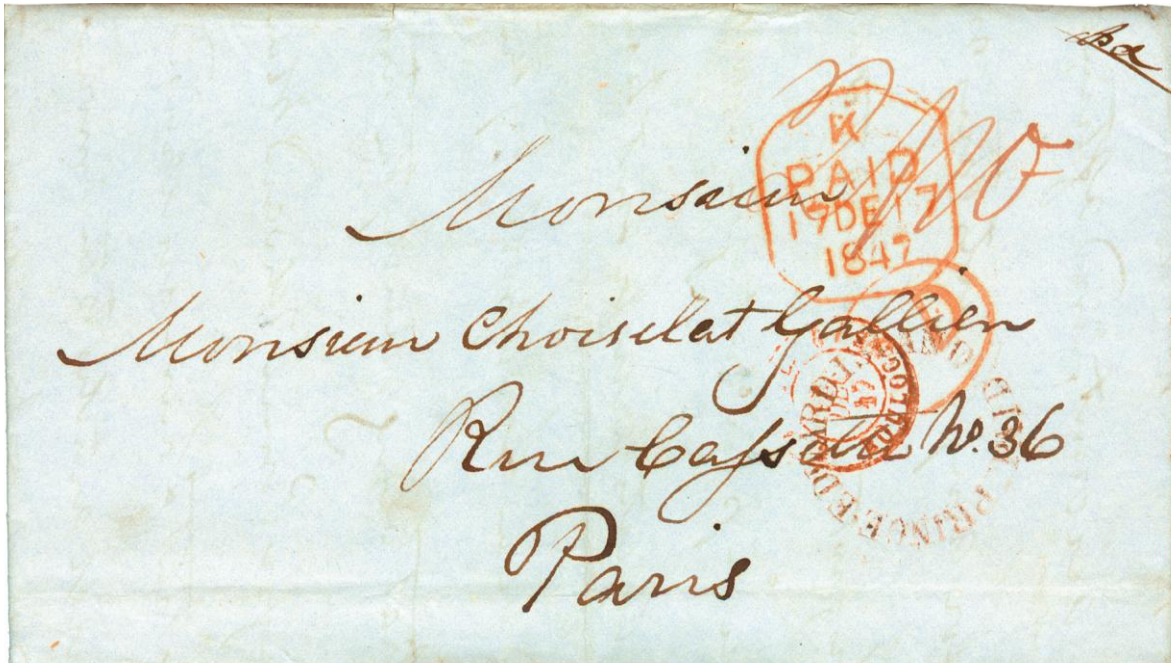 pd
K
PAID
17 DE 17
1847
Monsieur
Monsieur Choiselat Gallien
Rue Cassette No. 36
Paris
PRINCE EDWARD ISLAND
PAID